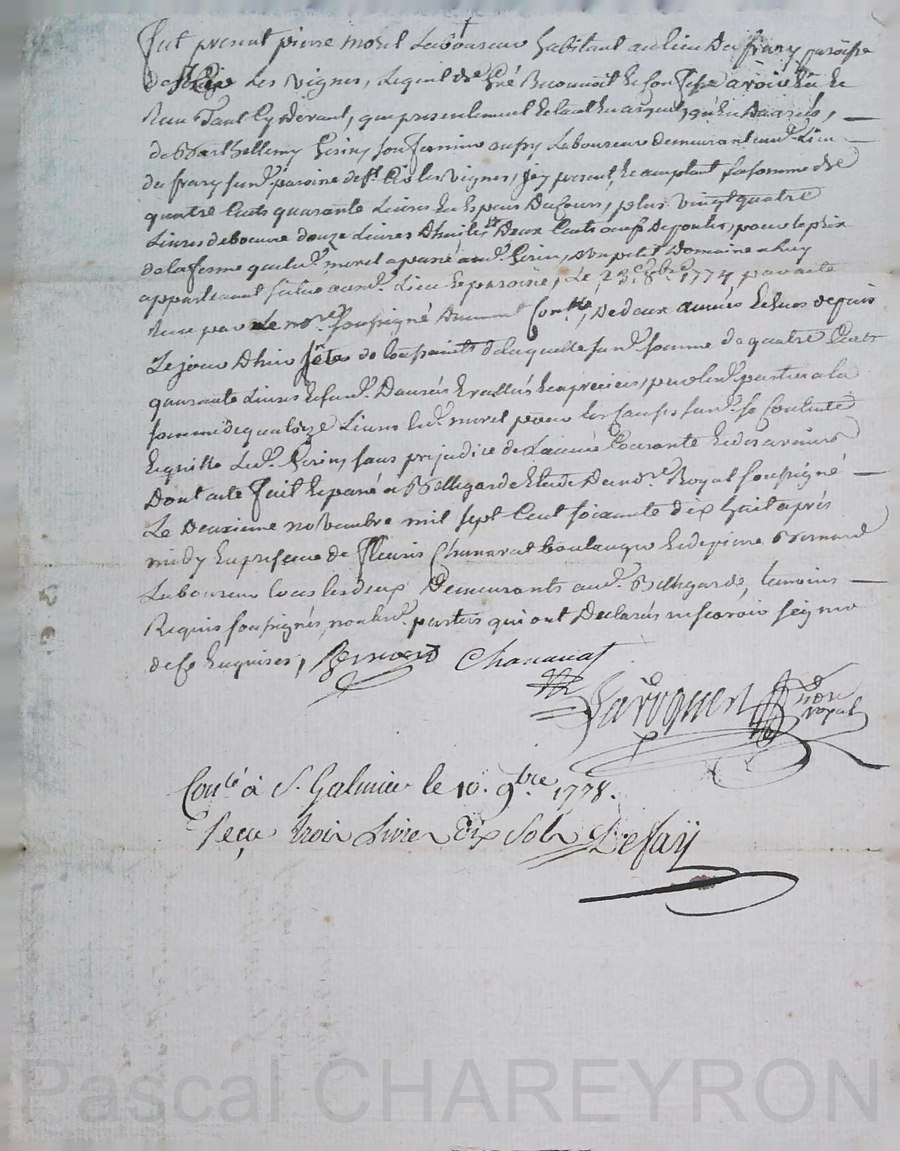 Fut present pierre morel Laboureur habitant au lieu du frary paroisse
de St Cire Les Vignes, Lequel de Gré Reconnoit et Confesse avoir Eû et
Reçu Tant Cy devant, que presentement
de Barthellemy son fermier aussy Laboureur demeurant aud. Lieu
du frary susd. paroisse de St Cire les Vignes, icy present, acceptant la somme de
quatre Cents quarante Livres En Especes du Cours, plus vingt quatre
Livres de beurre douze Livres Dhuile, Deux Cents oeufs de poules, pour le prix
de la ferme que led. morel a passé aud. d'un petit Domaine a luy
appartenant situé aud. Lieu et paroisse, Le 23e 8bre 1774, par acte
Reçu par Le nore. soussigné duement Conllé, de deux années Echues depuis
Le jour Dhier fête de tous saints de laquelle susd. somme de quatre Cents
quarante Livres et susd. Danrées Evallüés En precieu, par lesd. parties a la
somme de quatorze Livres led. morel pour les Causes susd. se Contente
Et quitte Led. sans prejudice de L'année Courante et des avenirs
Dont acte Fait et passé a Bellegarde Etude du nore Royal soussigné
Le Deuxieme novembre mil sept Cent soixante dix huit après
midy En presence de fleuris Chanavat boulanger et de pierre Bernard
Laboureur tous les deux Demeurants aud. Bellegarde, temoins
Requis soussignés, non lesd. parties qui ont Déclarés ne savoir signer
de ce Enquises, Bernard Chanavat
nore
royal
Conlé à St. Galmier le 10. 9bre 1778.
Reçu trois Livres dix Sols Defaÿ
Pascal CHAREYRON